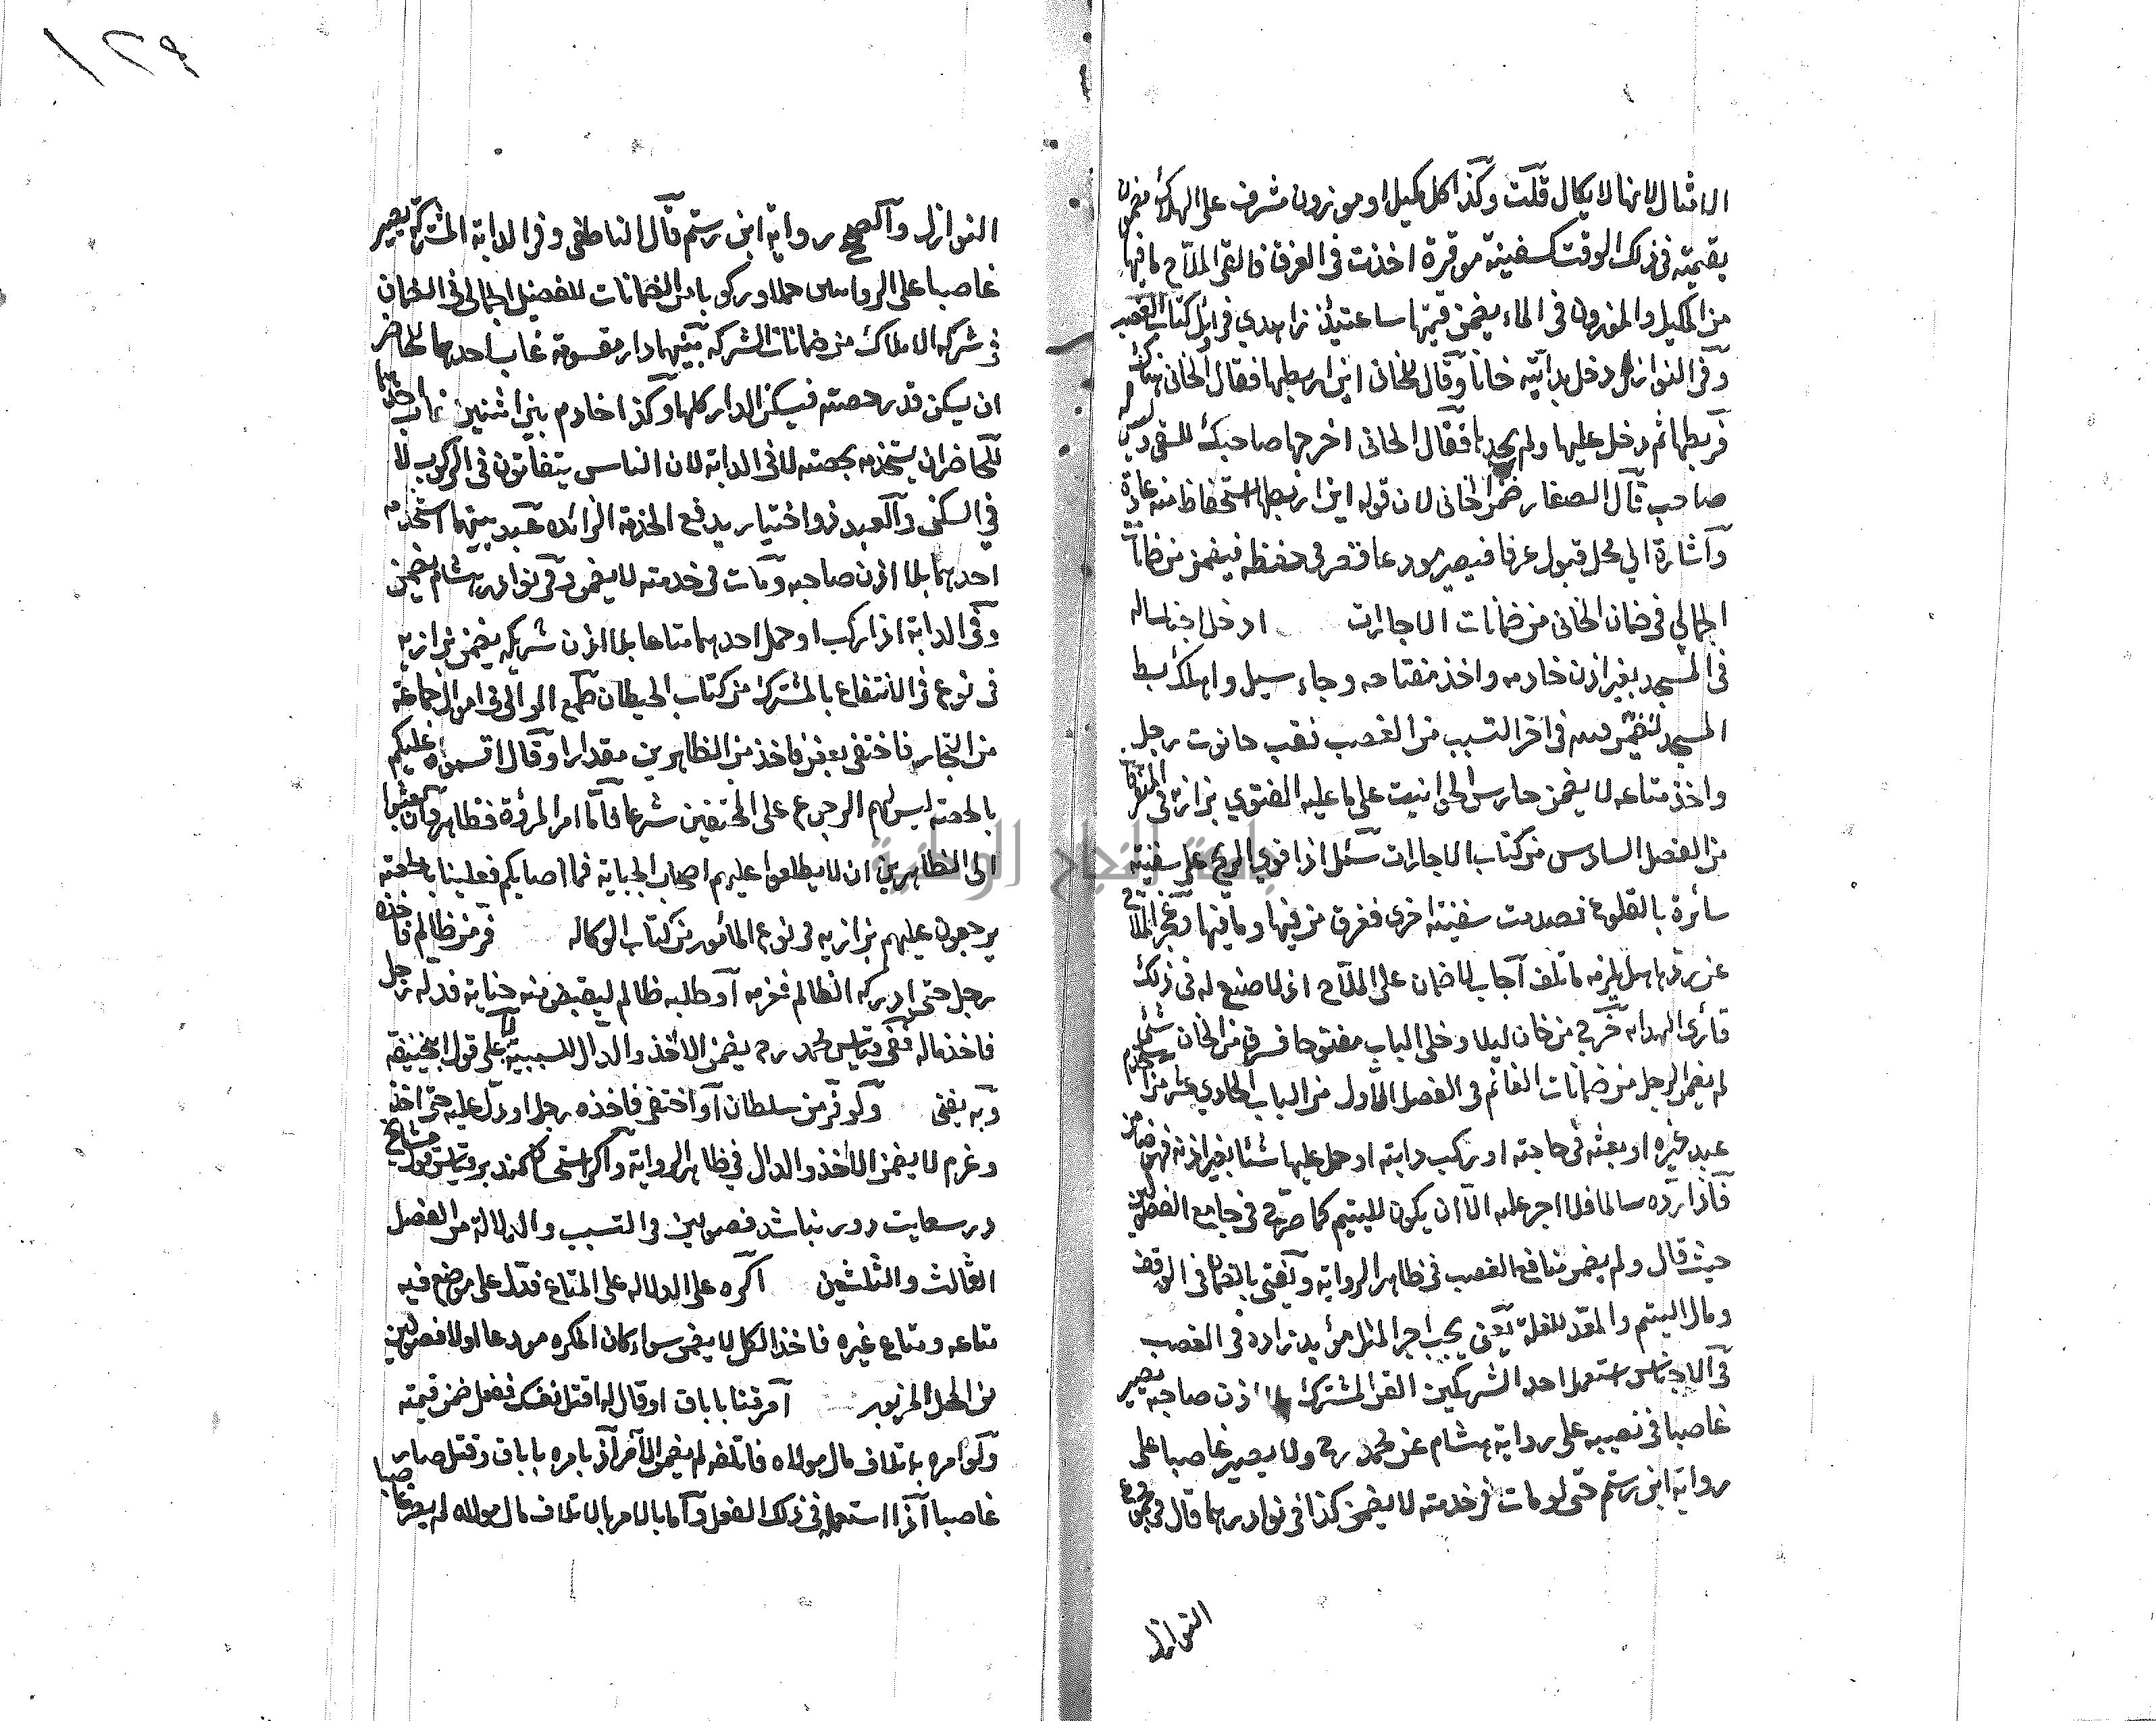 الامثال لانها لا يكال قلت وكذا كل مكيل او موزون مشرف على الهلاك مضمون
بقيمته في ذلك الوقت كسفينة موقرة اخذت في الغرق فالقى الملاح ما فيها
من المكيل والموزون في الماء يضمن قيمتها ساعتئذ زاهدي في اوائل كتاب الغصب
وفي النوازل دخل بدابته خانا وقال للخان اين اربطها فقال الخان هناك
فربطها ثم دخل عليها ولم يجدها فقال الخاني اخرجها صاحبك للسقي وليس له
صاحب قال الصفار ضمن الخاني لان قوله اين اربطها استحفاظ منه عادة
واشارة الى محل قبول عرفا فيصير مودعا قصر في حفظه فيضمن من ضمانات
الجمالي في ضمان الخاني من ضمانات الاجارات ادخل اجناسا له
في المسجد بغير اذن خادمه واخذ مفتاحه وجاء سيل واهلك بسط
المسجد يضمن في اخر التسبب من الغصب نقب حانوت رجل
واخذ متاعه لا يضمن حارس الحوانيت على ما عليه الفتوى بزازيه في المتفرقات
من الفصل السادس من كتاب الاجارات سئل اذا قوي الريح على سفينة
سائرة بالقلوع فصدمت سفينة اخرى فغرق من فيها وما فيها وعجز الملاح
عن ردها هل يلزمه ما تلف اجاب لا ضمان على الملاح اذ لا صنع له في ذلك
قارئ الهدايه خرج من خان ليلا وخلى الباب مفتوحا فسرق من الخان شئ
لم يضمن الرجل من ضمانات الغانم في الفصل الاول من الباب الحادي عشر من استخدم
عبد غيره او بعثه في حاجته او ركب دابته او حمل عليها شئا بغير اذنه فهو ضامن
فاذا رده سالما فلا اجر عليه الا ان يكون لليتيم كما صرح في جامع الفصولين
حيث قال ولم يضمن منافع الغصب في ظاهر الرواية ويفتى بالضمان في الوقف
ومال اليتيم والمعد للغلة يعني يجب اجر المثل مؤيد زاده في الغصب
في الاجناس استعمل احد الشريكين القن المشترك بلا اذن صاحبه يصير
غاصبا في نصيبه على رواية هشام عن محمد رح ولا يصير غاصبا على
رواية ابن رستم حتى لو مات في خدمته لا يضمن كذا في نوادرهما قال في مجموع
النوازل
١٢٩
النوازل والصحيح رواية ابن رستم قال الناطفي وفي الدابة المشتركة يصير
غاصبا على الروايتين حملا وركوبا من الضمانات للفضيل الجمالي في الضمان
في شركة الاملاك من ضمانات الشركه بينهما دار مقسومة غاب احدهما للحاضر
ان يسكن قدر حصته فيسكن الدار كلها وكذا خادم بين اثنين غاب احدهما
للحاضر ان يستخدمه بحصته لا في الدابة لان الناس يتفاوتون في الركوب لا
في السكنى والعبد ذو اختيار يدفع الخدمة الزائده عبد بينهما استخدمه
احدهما بلا اذن صاحبه ومات في خدمته لا يضمن وفي نوادر هشام يضمن
وفي الدابة اذا ركب او حمل احدهما متاعا بلا اذن شريكه يضمن بزازيه
في نوع في الانتفاع بالمشترك من كتاب الحيطان طمع الوالي في اموال جماعة
من التجار فاختفى بعض فاخذ من الظاهرين مقدارا وقال اقسموا عليكم
بالحصة ليس لهم الرجوع على المختفين شرعا فاما امر المرؤة فظاهر وان بعثوا
الى الظاهرين ان لا يطلعوا عليهم اصحاب الجباية فما اصابكم فعلينا بالحصة
يرجعون عليهم بزازيه في نوع المأمور من كتاب الوكاله فر من ظالم فاخذه
رجل حتى ادركه الظالم فغرمه او طلبه ظالم ليقبض منه جناية فدله رجل
فاخذ ماله ففي قياس محمد رح يضمن الاخذ والدال للسببية لا على قول ابي حنيفة
وبه يفتى ولو فر من سلطان او اختفى فاخذه رجل او دل عليه حتى اخذ
وغرم لا يضمن الاخذ والدال في ظاهر الرواية
در سعايت دور نباشد فصولين في التسبب والدلالة من الفصل
الثالث والثلثين اكره على الدلاله على المتاع فدل على موضع فيه
متاعه ومتاع غيره فاخذ الكل لا يضمن سواء كان المكره مودعا او لا فصولين
من المحل المزبور امر قنا باباق او قال له اقتل نفسك ففعل ضمن قيمته
ولو امره باتلاف مال مولاه فاتلفه لم يضمن الامر اذ بامره باباق وقتل صار
غاصبا اذا استعمله في ذلك الفعل واما بالامر بالاتلاف مال مولاه لم يصر غاصبا
جامعة النجاح الوطنية